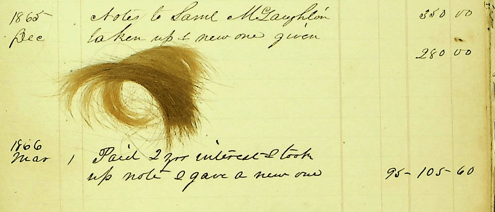 1865 Notes to Saml McLaughlin 350 00
Dec taken up & new one given
280 00
1866
Mar 1 Paid 2 yrs interest & took
up note & gave a new one 95-105-60